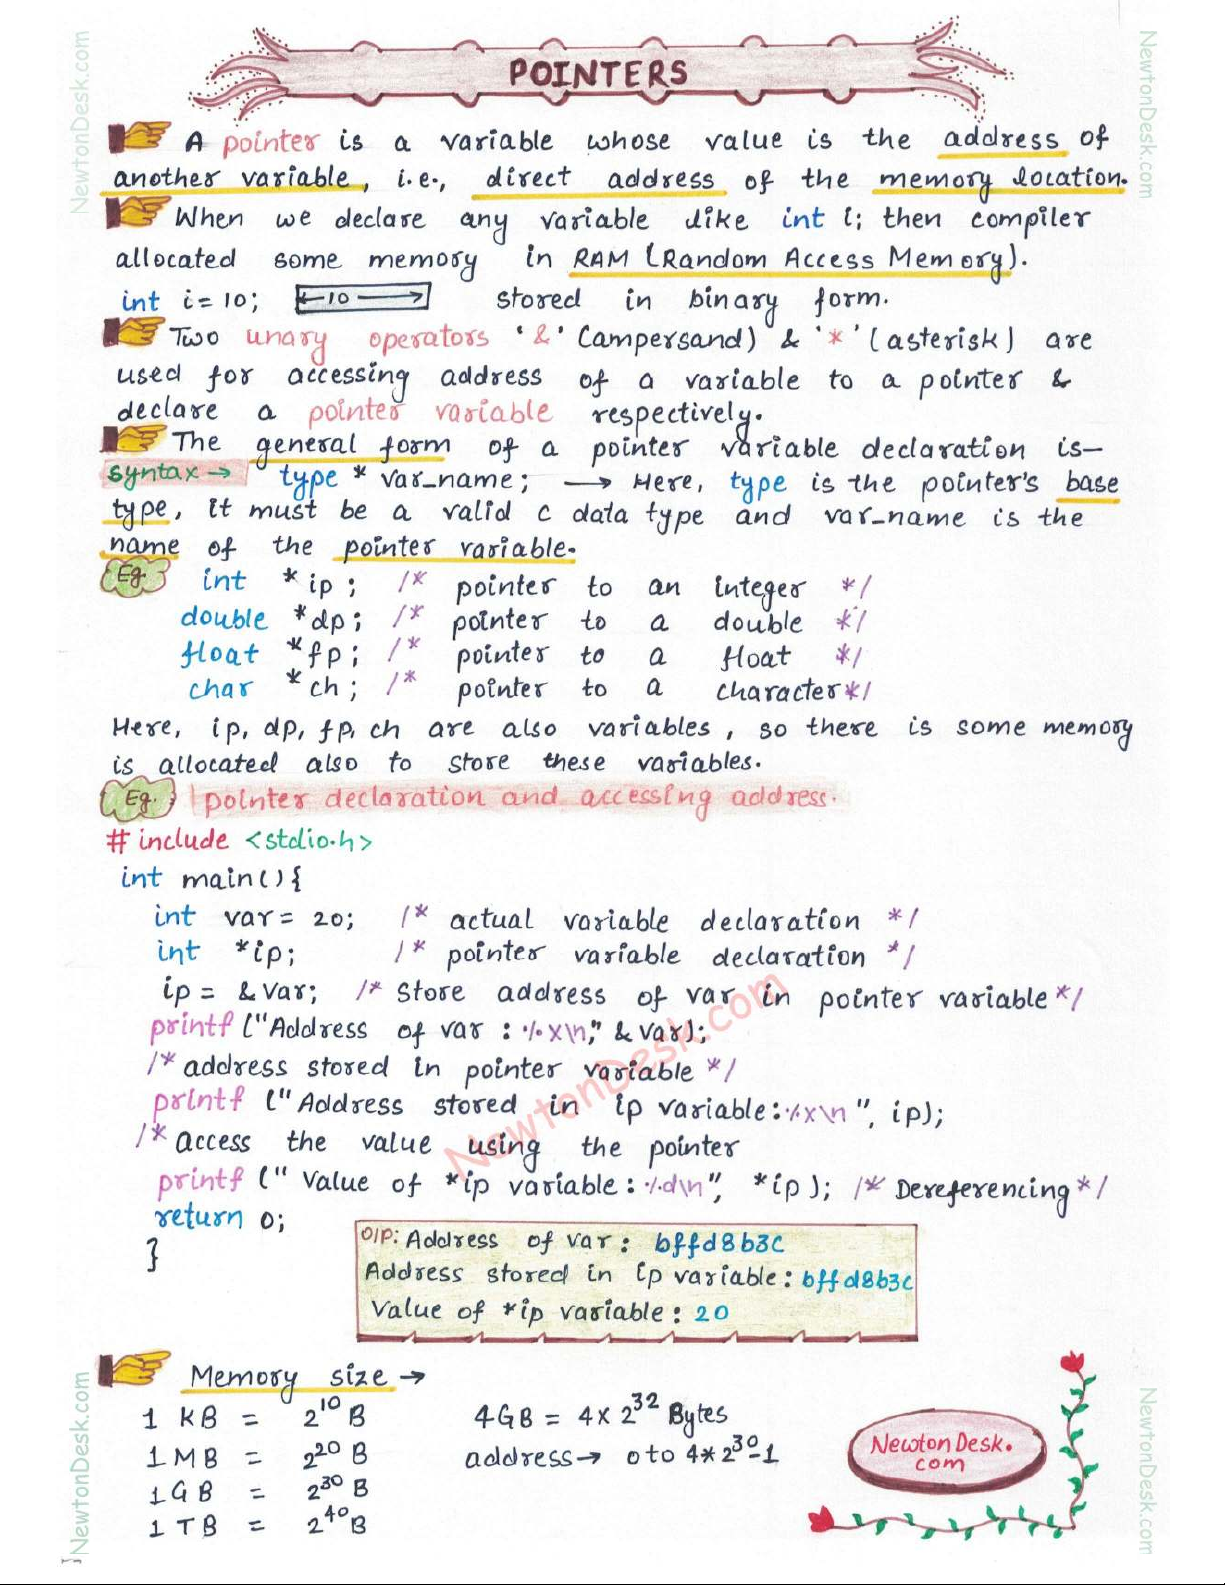 POINTERS
A pointer is a variable whose value is the address of
another variable, i.e., direct address of the memory location.
When we declare any variable like int i; then compiler
allocated some memory in RAM (Random Access Memory).
int i = 10; 10 stored in binary form.
Two unary operators '&' (ampersand) & '*' (asterisk) are
used for accessing address of a variable to a pointer &
declare a pointer variable respectively.
The general form of a pointer variable declaration is—
syntax → type * var_name; → Here, type is the pointer's base
type, it must be a valid c data type and var_name is the
name of the pointer variable.
Eg. int *ip; /* pointer to an integer */
double *dp; /* pointer to a double */
float *fp; /* pointer to a float */
char *ch; /* pointer to a character */
Here, ip, dp, fp, ch are also variables, so there is some memory
is allocated also to store these variables.
Eg. pointer declaration and accessing address.
# include <stdio.h>
int main() {
int var = 20; /* actual variable declaration */
int *ip; /* pointer variable declaration */
ip = &var; /* Store address of var in pointer variable */
printf ("Address of var : %x\n", &var);
/* address stored in pointer variable */
printf ("Address stored in ip variable: %x\n", ip);
/* Access the value using the pointer
printf (" Value of *ip variable: %d\n", *ip); /* Dereferencing */
return 0;
}
O/P: Address of var : bffd8b3c
Address stored in ip variable : bffd8b3c
Value of *ip variable : 20
Memory size →
1 KB = 2^10 B 4GB = 4 x 2^32 Bytes
1 MB = 2^20 B address → 0 to 4*2^30-1
1 GB = 2^30 B
1 TB = 2^40 B
NewtonDesk.
com
NewtonDesk.com
NewtonDesk.com
NewtonDesk.com
NewtonDesk.com
NewtonDesk.com